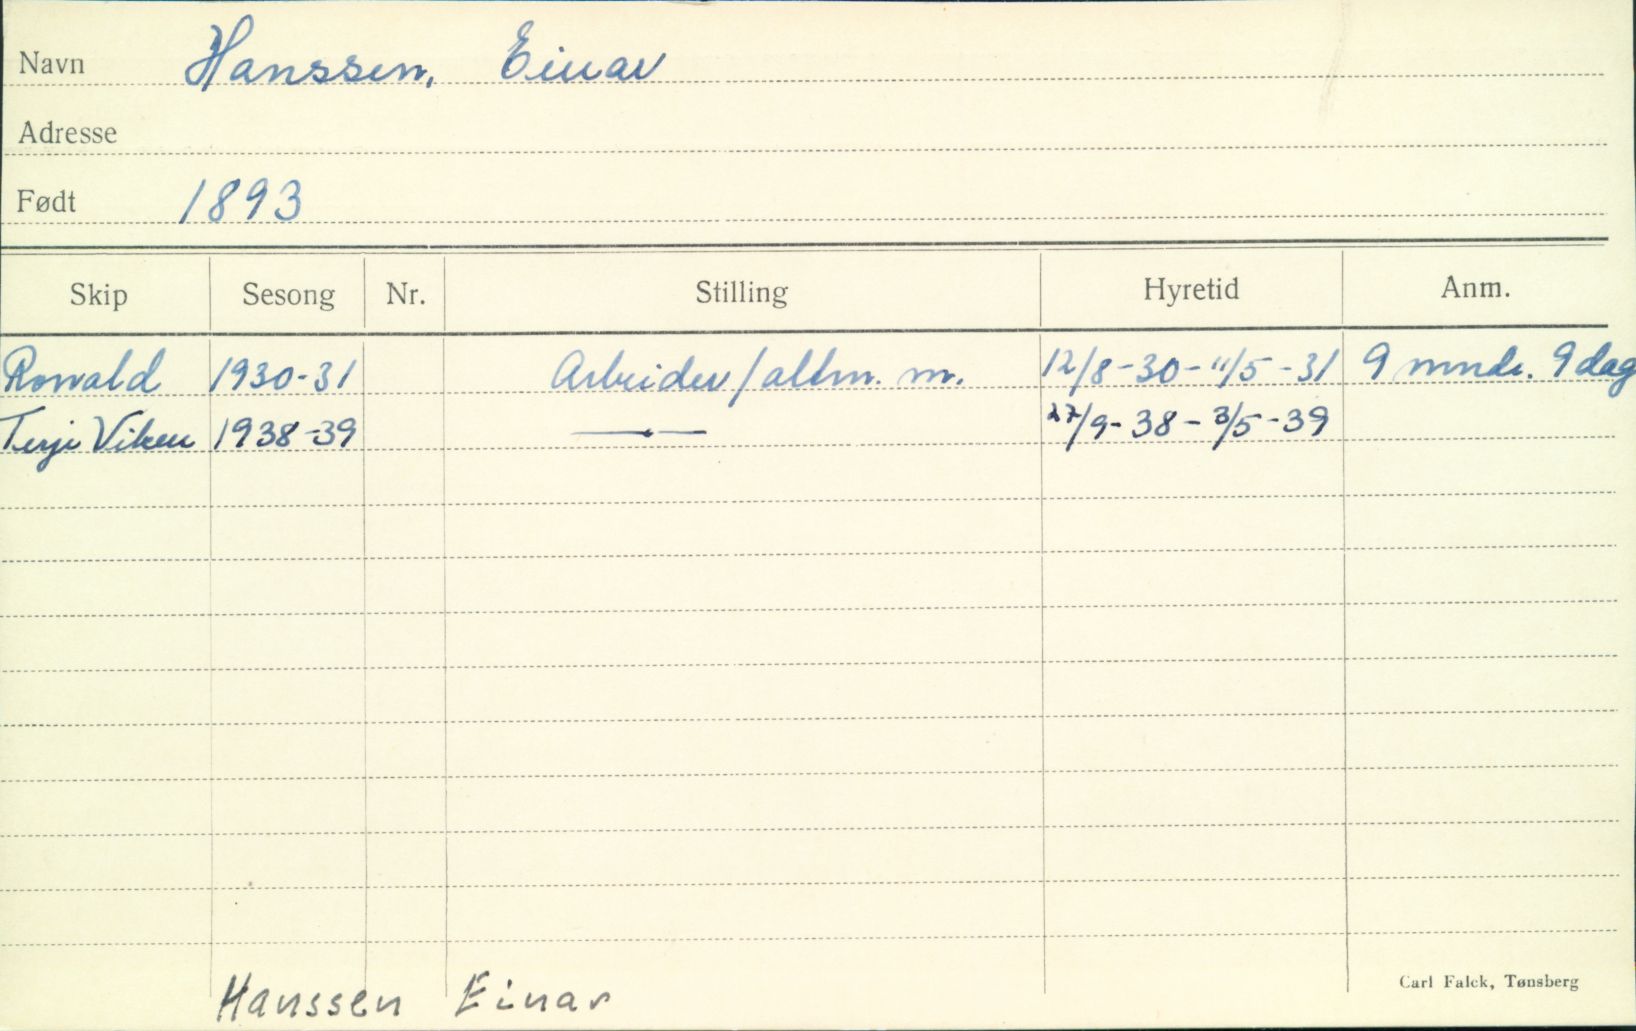 Navn Hanssen, Einar
Adresse
Født 1893
Skip Sesong Nr. Stilling Hyretid Anm.
Ronald 1930-31 Arbeider/altm. m. 12/8-30-11/5-31 9 mndr. 9 dag
Terje Viken 1938-39 —〃— 27/9-38-3/5-39
Hanssen Einar
Carl Falck, Tønsberg